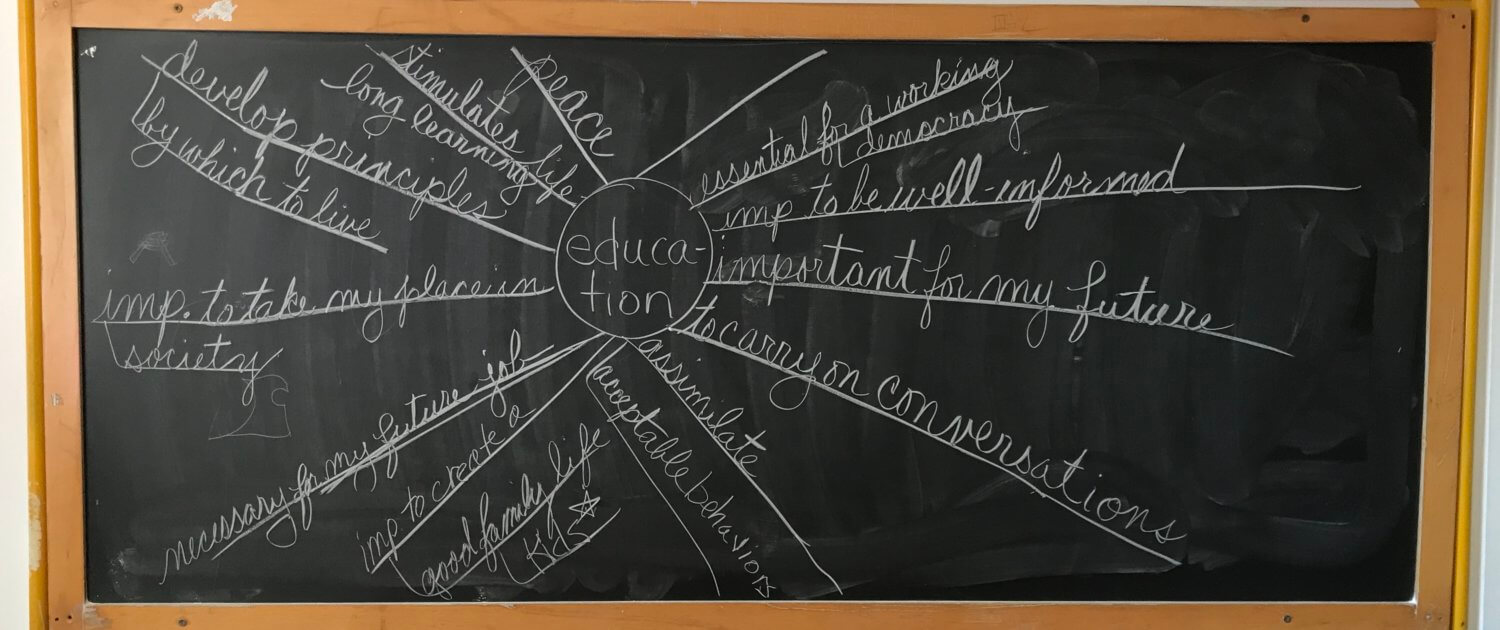 educa-
tion
peace
essential for a working
democracy
imp to be well-informed
important for my future
to carry on conversations
assimilate
acceptable behaviors
imp to create a
good family life
Kids
necessary for my future job
imp. to take my place in
society
develop principles
by which to live
stimulates life-
long learning